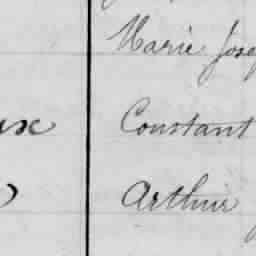 Marie Josep
ux Constant
Arthur